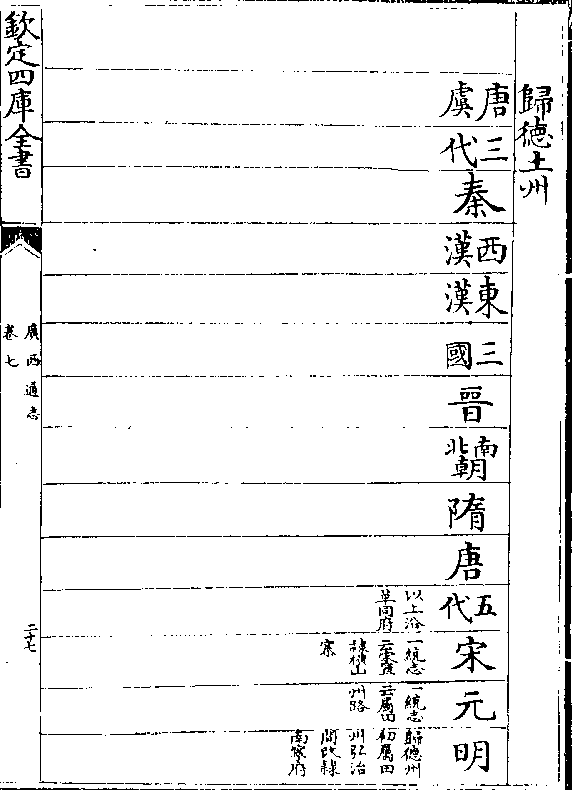 歸德土州
唐虞
三代
秦
西漢
東漢
三國
晉
南北朝
隋
唐
五代
以上沿
革同府
宋
一統志
云宋置
隸橫山
寨
元
一統志
云屬田
州路
明
歸德州
初屬田
州弘治
間改隸
南寧府
欽定四庫全書
廣西通志
卷七
二十七